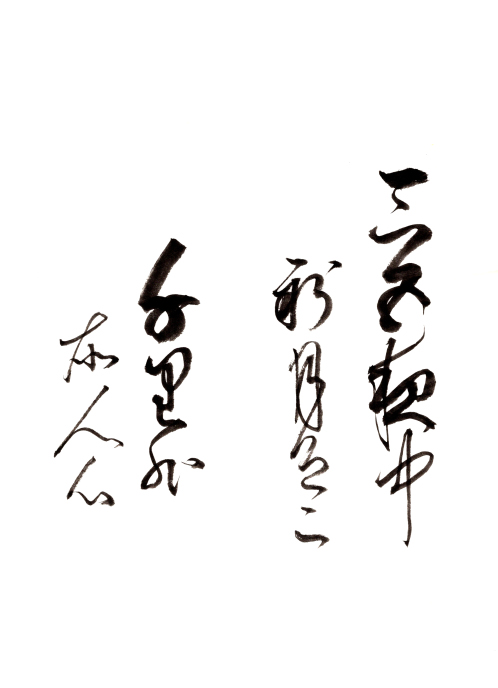 三五夜中
新月色
二千里外
故人心